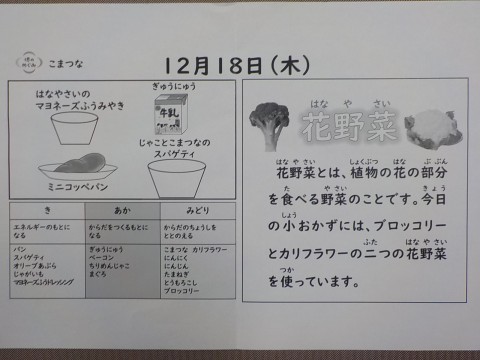 こまつな
12月18日(木)
はなやさいの
マヨネーズふうみやき
ぎゅうにゅう
牛乳
じゃことこまつなの
スパゲティ
ミニコッペパン
き
あか
みどり
エネルギーのもとに
なる
からだをつくるもとになる
からだのちょうしを
ととのえる
パン
スパゲティ
オリーブあぶら
じゃがいも
マヨネーズふうドレッシング
ぎゅうにゅう
ベーコン
ちりめんじゃこ
まぐろ
こまつな カリフラワー
にんにく
にんじん
たまねぎ
とうもろこし
ブロッコリー
はな や さい
花野菜
はな や さい しょくぶつ はな ぶ ぶん
花野菜とは、植物の花の部分
た や さい きょ う
を食べる野菜のことです。今日
しょう
の小おかずには、ブロッコリー
ふた はな や さい
とカリフラワーの二つの花野菜
つか
を使っています。